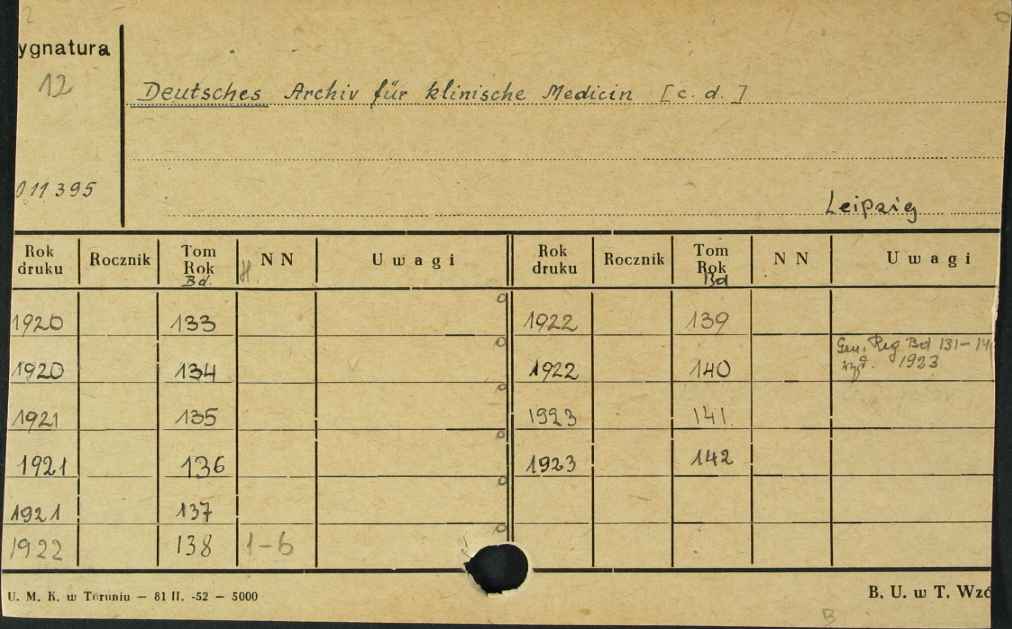 ygnatura
12
Deutsches Archiv für klinische Medicin [c. d.]
011395
Leipzig
Rok druku Rocznik Tom Rok Bd. H. NN Uwagi Rok druku Rocznik Tom Rok Bd NN Uwagi
1920 133 1922 139
1920 134 1922 140 Gen. Reg Bd 131-14 1923
1921 135 1923 141
1921 136 1923 142
1921 137
1922 138 1-6
U. M. K. w Toruniu — 81 II. -52 — 5000
B. U. w T. Wzó
B